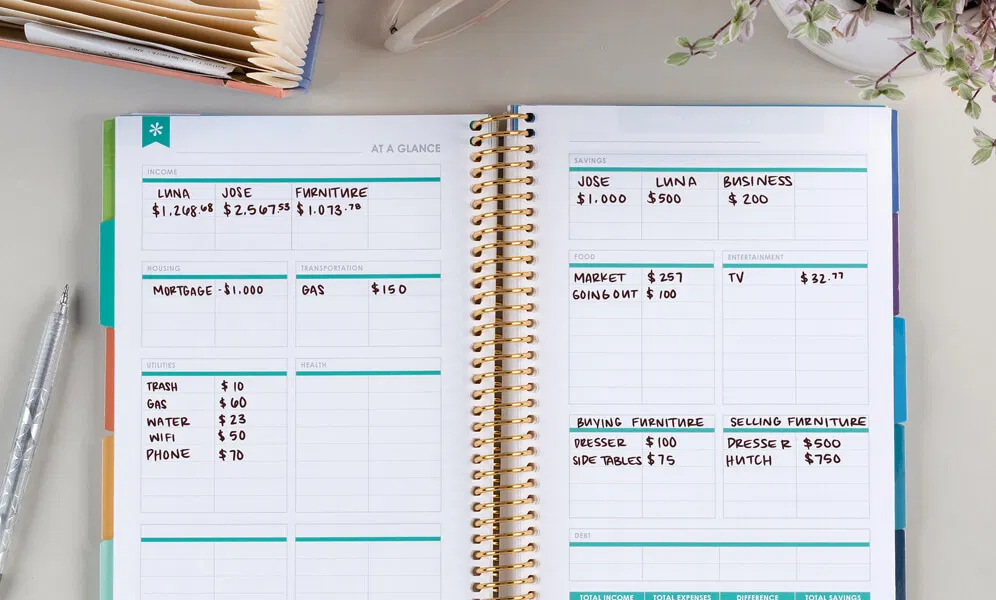 AT A GLANCE
INCOME
LUNA JOSE FURNITURE
$1,268.68 $2,567.53 $1,073.78
HOUSING TRANSPORTATION
MORTGAGE - $1,000 GAS $150
UTILITIES HEALTH
TRASH $10
GAS $60
WATER $23
WIFI $50
PHONE $70
SAVINGS
JOSE LUNA BUSINESS
$1,000 $500 $200
FOOD ENTERTAINMENT
MARKET $257 TV $32.77
GOING OUT $100
BUYING FURNITURE SELLING FURNITURE
DRESSER $100 DRESSER $500
SIDE TABLES $75 HUTCH $750
DEBT
TOTAL INCOME TOTAL EXPENSES DIFFERENCE TOTAL SAVINGS